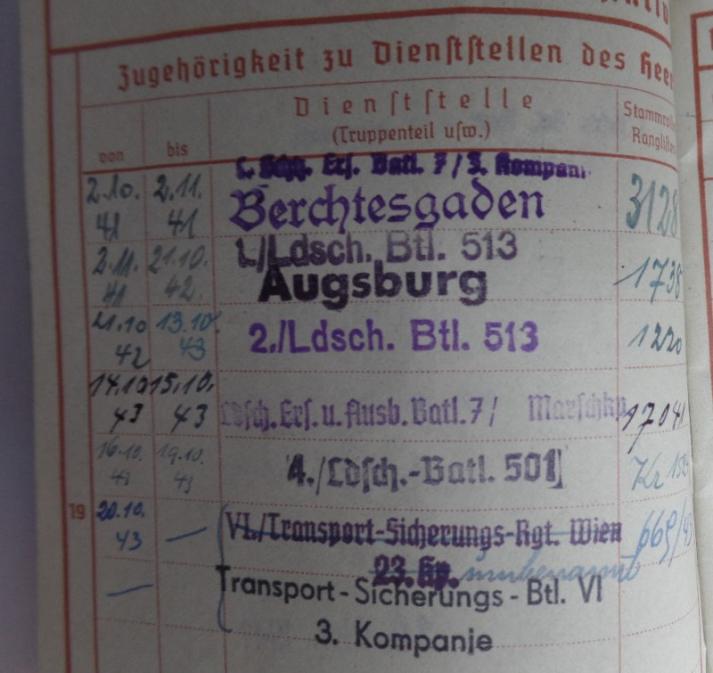 Zugehörigkeit zu Dienststellen des Heer
von bis Dienststelle
(Truppenteil usw.) Stammro
Ranglist
Ers. Batl. 7 / 3. Kompani
2.10. 41 2.11. 41 Berchtesgaden 3128
2.11. 41 21.10. 42. 1./Ldsch. Btl. 513
Augsburg 1738
21.10 42 13.10. 43 2./Ldsch. Btl. 513 1220
14.10 43 15.10. 43 Ldsch. Ers. u. Ausb. Batl. 7 / Marschkp. 17041
16.10. 43 19.10. 43 4./Ldsch.-Batl. 501
19 20.10. 43 — VI./Transport-Sicherungs-Rgt. Wien 669/43
23. Kp. umbenannt
— Transport-Sicherungs-Btl. VI
3. Kompanie